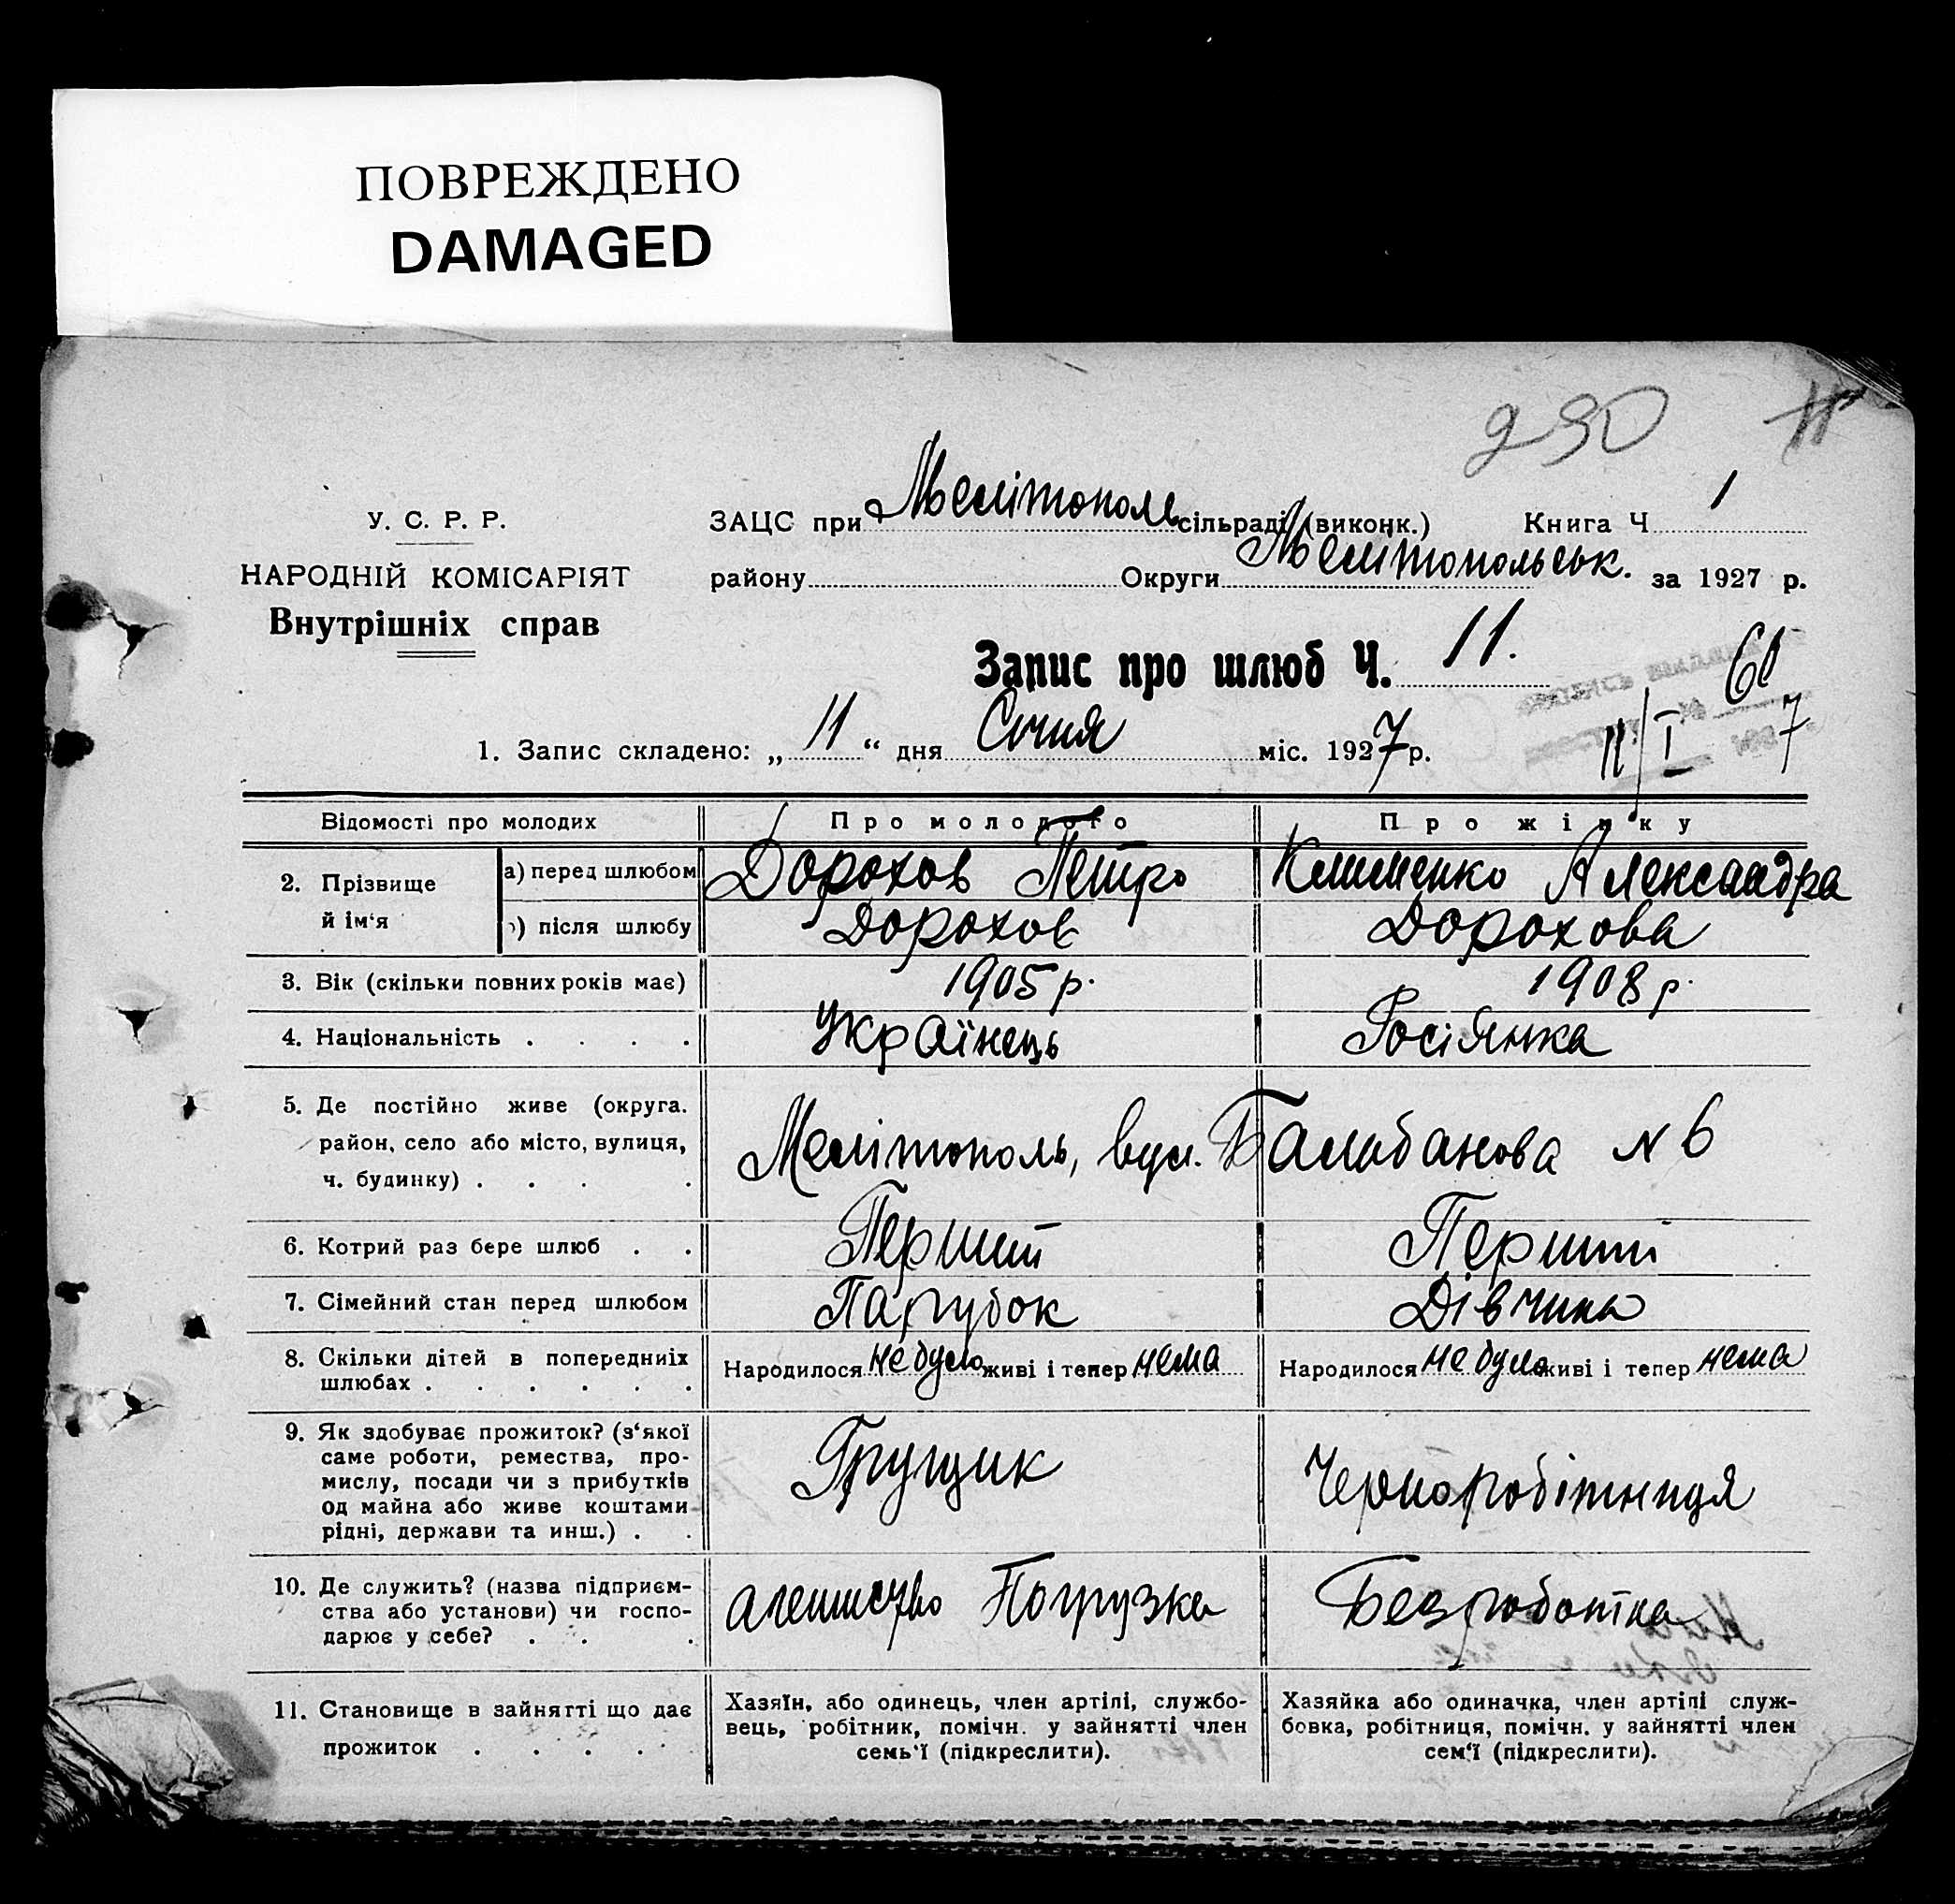 ПОВРЕЖДЕНО
DAMAGED
11
У. С. Р. Р.
НАРОДНІЙ КОМІСАРІЯТ
Внутрішніх справ
ЗАЦС при Мелітополь сільраді (виконк.) Книга Ч 1
району Округи Мелітопольськ. за 1927 р.
Запис про шлюб Ч. 11.
1. Запис складено: „ 11 “ дня Січня міс. 1927 р.
11/I 7
Відомості про молодих Про молодого Про жінку
2. Прізвище й ім‘я а) перед шлюбом Дорохов Петро Клименко Александра
) після шлюбу Дорохов Дорохова
3. Вік (скільки повних років має) 1905 р. 1908 р.
4. Національність . . . . Українець Росіянка
5. Де постійно живе (округа.
район, село або місто, вулиця,
ч. будинку) . . . . Мелітополь, вул. Балабанова № 6
6. Котрий раз бере шлюб . . Перший Перший
7. Сімейний стан перед шлюбом Парубок Дівчина
8. Скільки дітей в попередниіх
шлюбах . . . . . . Народилося не було живі і тепер нема Народилося не було живі і тепер нема
9. Як здобуває прожиток? (з‘якої
саме роботи, ремества, про-
мислу, посади чи з прибутків
од майна або живе коштами
рідні, держави та инш.) . . Грущик Чернаробітниця
10. Де служить? (назва підприєм-
ства або установи) чи госпо-
дарює у себе? . . . Погрузка Безработна
11. Становище в зайнятті що дає
прожиток . . . . .
Хазяїн, або одинець, член артілі, службо-
вець, робітник, помічн. у зайнятті член
семь‘ї (підкреслити).
Хазяйка або одиначка, член артілі служ-
бовка, робітниця, помічн. у зайнятті член
сем‘ї (підкреслити).